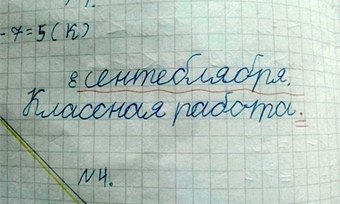 -7=5(К)
8 сентеблября.
Классная работа.
N4.